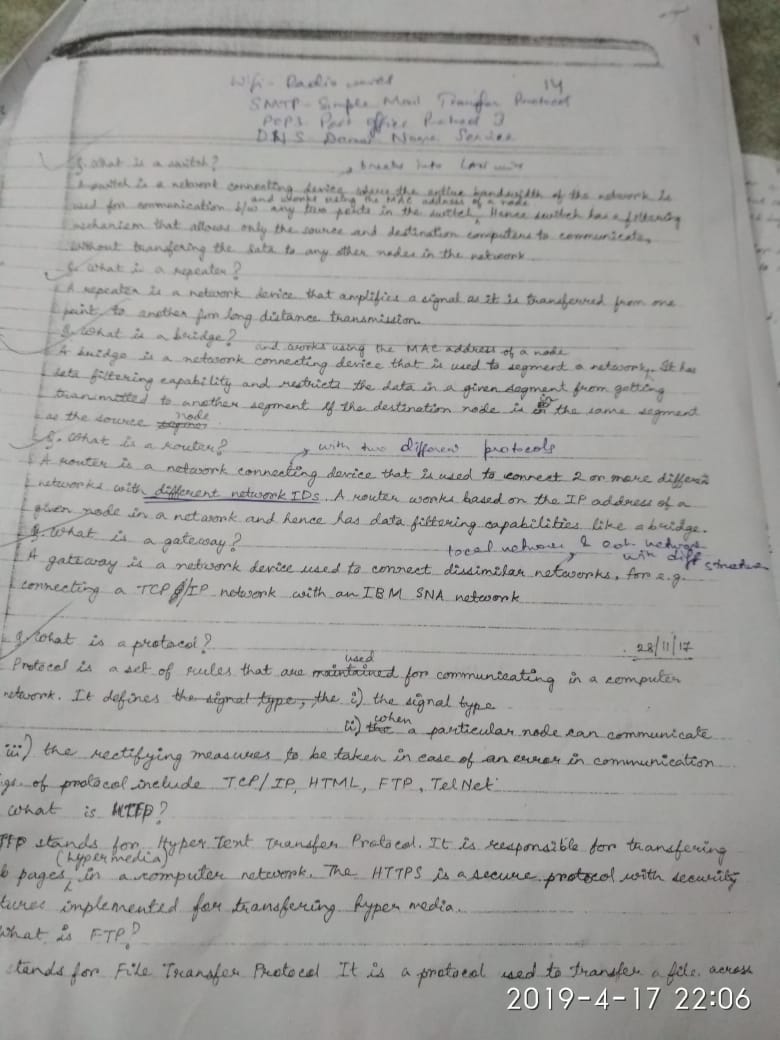 Wifi - Radio waves 14
SMTP - Simple Mail Transfer Protocol
POP3 Post Office Protocol 3
DNS Domain Name Service
Q. What is a switch? breaks into LAN
A switch is a network connecting device where the entire bandwidth of the network is
and works using the MAC address of a node
used for communication b/w any two points in the switch. Hence switch has a filtering
mechanism that allows only the source and destination computers to communicate,
without transfering the data to any other nodes in the network
Q. What is a repeater?
A repeater is a network device that amplifies a signal as it is transferred from one
point to another for long distance transmission.
Q. What is a bridge? and works using the MAC address of a node
A bridge is a network connecting device that is used to segment a network. It has
data filtering capability and restricts the data in a given segment from getting
transmitted to another segment if the destination node is in the same segment
as the source node
Q. What is a router? with two different protocols
A router is a network connecting device that is used to connect 2 or more differen
networks with different network IDs. A router works based on the IP address of a
given node in a network and hence has data filtering capabilities like a bridge.
Q. What is a gateway? local network & networks
with diff structure
A gateway is a network device used to connect dissimilar networks, for e.g.
connecting a TCP/IP network with an IBM SNA network
Q. What is a protocol? 28/11/17
used
Protocol is a set of rules that are maintained for communicating in a computer
network. It defines the signal type, the i) the signal type
ii) the when a particular node can communicate
iii) the rectifying measures to be taken in case of an error in communication
gs. of protocol include TCP/IP, HTML, FTP, TelNet
What is HTTP?
TTP stands for Hyper Text Transfer Protocol. It is responsible for transfering
(hypermedia)
b pages in a computer network. The HTTPS is a secure protocol with security
tures implemented for transfering hyper media.
What is FTP?
stands for File Transfer Protocol It is a protocol used to transfer a file across
2019-4-17 22:06